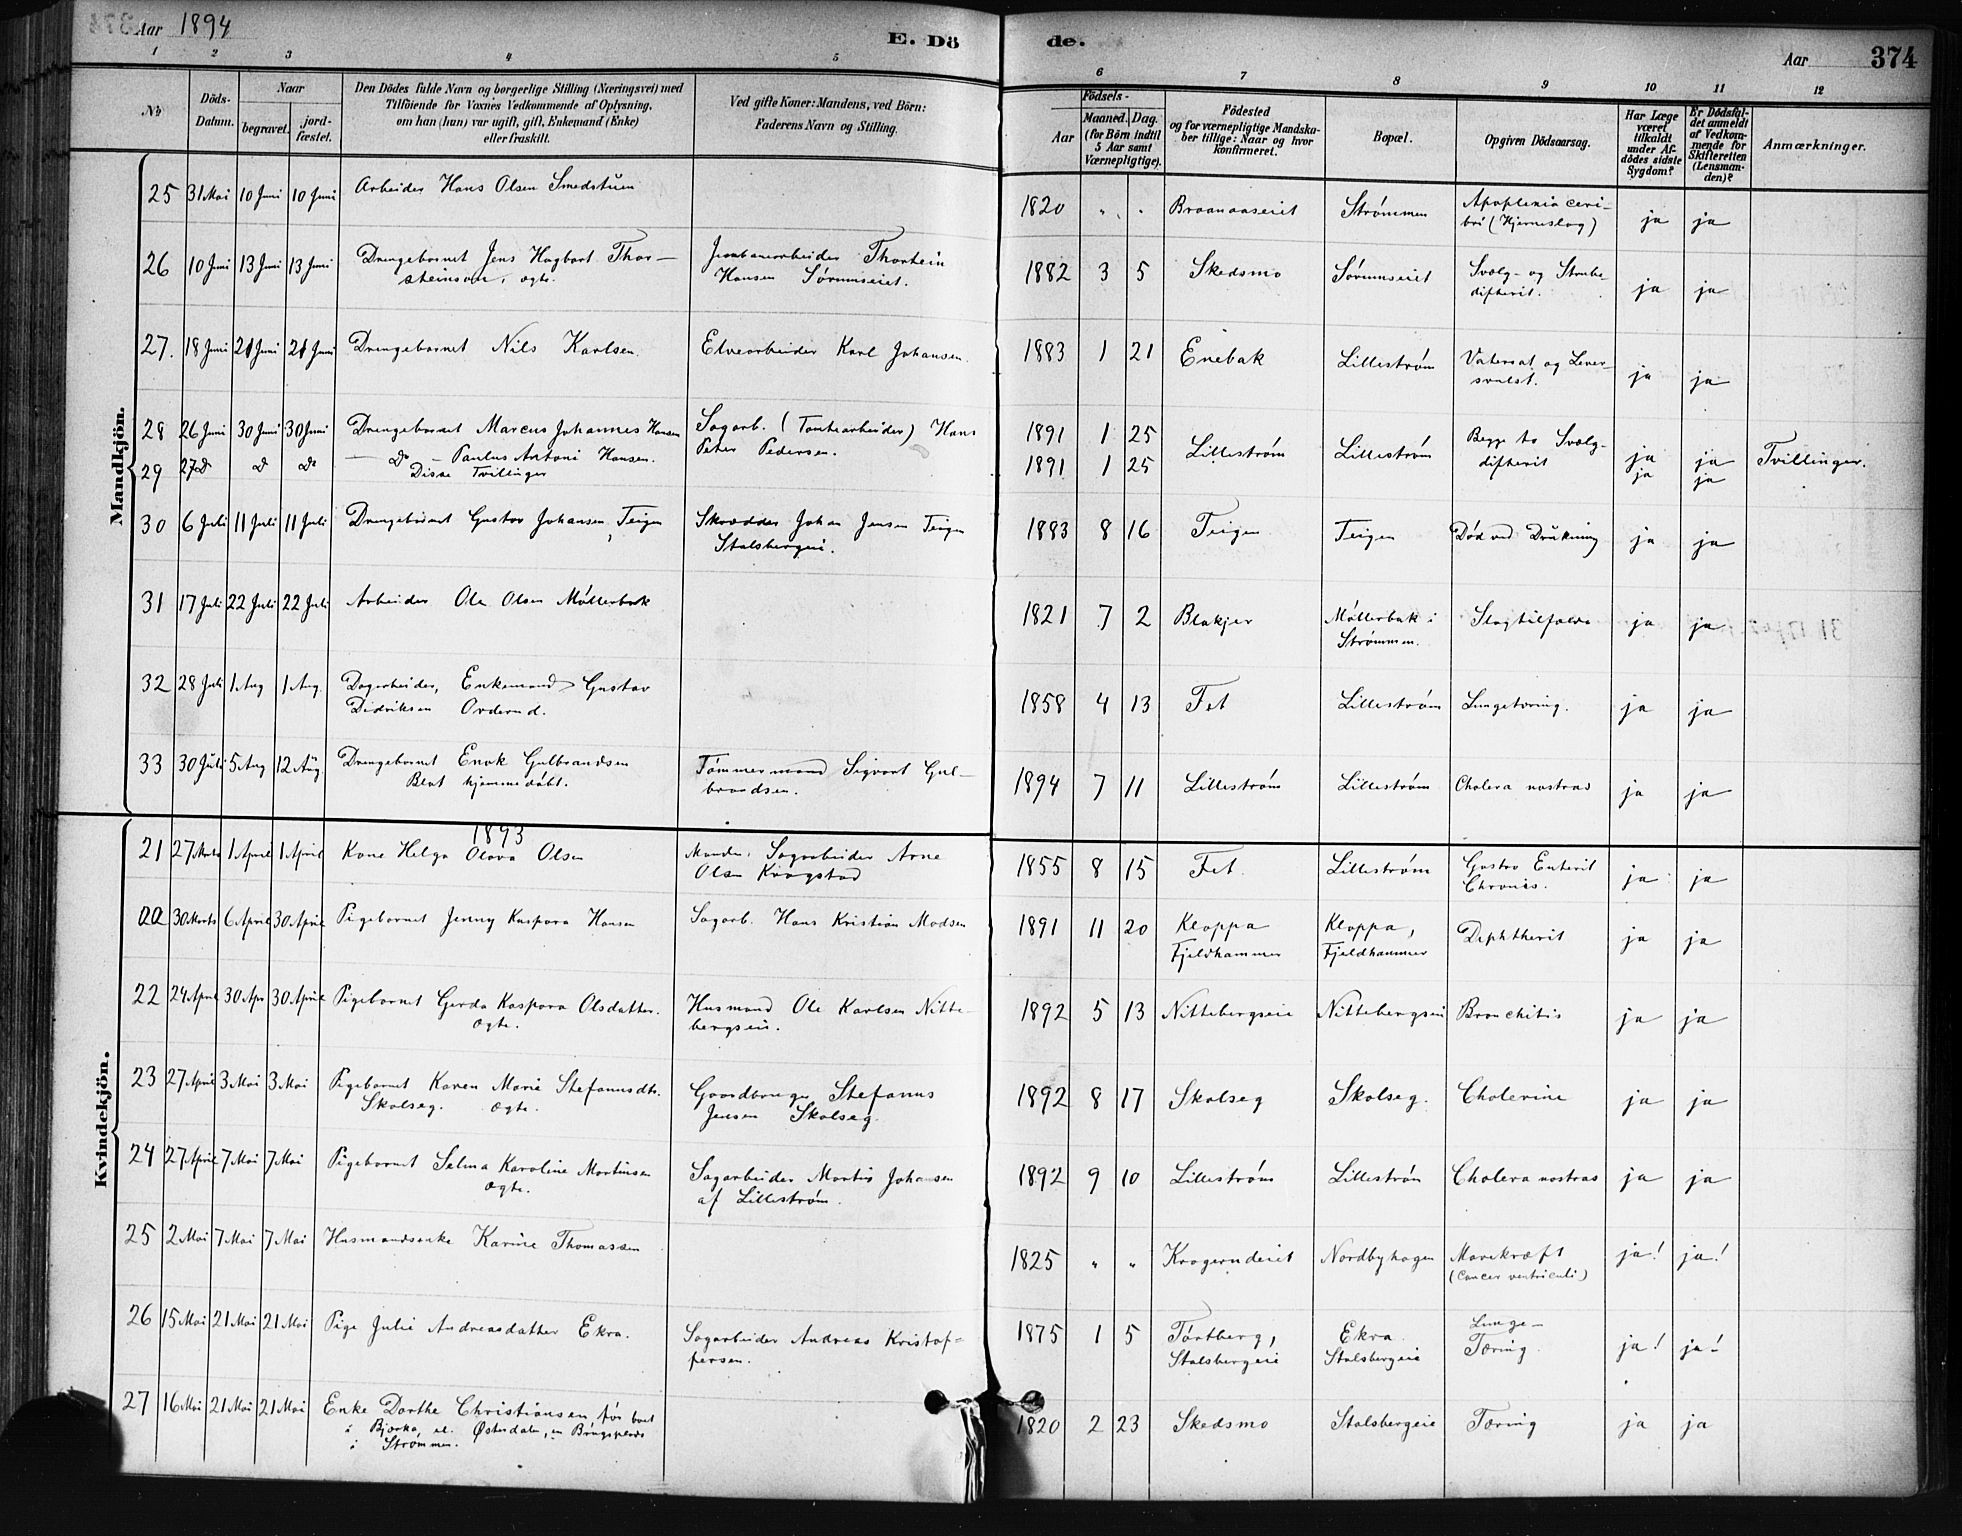 Aar 1894
E. Dö
de.
Aar
374
1 2 3 4 5
6 7 8 9 10 11 12
No
Döds-
Datum.
Naar
begravet.
jord-
fæstet.
Den Dödes fulde Navn og borgerlige Stilling (Næringsvei) med
Tilföiende for Voxnes Vedkommende af Oplysning,
om han (hun) var ugift, gift, Enkemand (Enke)
eller fraskilt.
Ved gifte Koner: Mandens, ved Börn:
Faderens Navn og Stilling.
Födsels-
Aar
Maaned. Dag.
(for Börn indtil
5 Aar samt
Værnepligtige).
Födested
og for værnepligtige Mandska-
ber tillige: Naar og hvor
konfirmeret.
Bopæl.
Opgiven Dödsaarsag.
Har Læge
været
tilkaldt
under Af-
dödes sidste
Sygdom?
Er Dödsfal-
det anmeldt
af Vedkom-
mende for
Skifteretten
(Lensman-
den)?
Anmærkninger.
Mandkjön.
25 31 Mai 10 Juni 10 Juni Arbeider Hans Olsen Smedstuen
1820 " " Braanaaseiet Strømmen Apoplexia ceri-
bri (Hjerneslag) ja ja
26 10 Juni 13 Juni 13 Juni Drengebarnet Jens Hagbart Thor-
steinson, ægte.
Jernbanearbeider Thorstein
Hansen Sørumseiet.
1882 3 5 Skedsmo Sørumseiet Svælg- og Strube
difterit. ja ja
27. 18 Juni 21 Juni 21 Juni Drengebarnet Nils Karlsen Elvearbeider Karl Johansen
1883 1 21 Enebak Lillestrøm Vatersot og Lever-
svulst. ja ja
28 26 Juni 30 Juni 30 Juni Drengebarnet Marcus Johannes Hansen
29 27 do do do — do — Paulus Antoni Hansen.
Disse Tvillinger
Sagarb. (Tomtearbeider) Hans
Peter Pedersen.
1891 1 25
1891 1 25
Lillestrøm Lillestrøm Begge to Svælg-
difterit ja ja
ja ja
Tvillinger.
30 6 Juli 11 Juli 11 Juli Drengebarnet Gustav Johansen, Teigen
Skrædder Johan Jensen Teigen
Stalsbergeie.
1883 8 16 Teigen Teigen Død ved Drukning ja ja
31 17 Juli 22 Juli 22 Juli Arbeider Ole Olsen Møllerbak
1821 7 2 Blakjer Møllerbak i
Strømmen. Slagtilfælde ja ja
32 28 Juli 1 Aug 1 Aug. Dagarbeider, Enkemand Gustav
Didriksen Orderud.
1858 4 13 Fet Lillestrøm Lungetæring. ja ja
33 30 Juli 5 Aug 12 Aug. Drengebarnet Enok Gulbrandsen
Blot hjemmedøbt.
Tømmermand Sigvart Gul-
brandsen.
1894 7 11 Lillestrøm Lillestrøm Cholera nostras ja ja
Kvindekjön.
1893
21 27 Marts 1 April 1 April Kone Helga Olava Olsen
Manden: Sagarbeider Arne
Olsen Krogstad
1855 8 15 Fet. Lillestrøm Gastro Enterit
Chronis. ja ja
aa 30 Marts 6 April 30 April Pigebarnet Jenny Kaspara Hansen Sagarb. Hans Kristian Madsen
1891 11 20 Kloppa
Fjeldhammer Kloppa,
Fjeldhammer Diphtherit ja ja
22 24 April 30 Apr 30 April Pigebarnet Gerda Kaspara Olsdatter.
ægte.
Husmand Ole Karlsen Nitte-
bergseie.
1892 5 13 Nittebergseie Nittebergseie Bronchitis ja ja
23 27 April 3 Mai 3 Mai Pigebarnet Karen Marie Stefanusdtr.
Skolseg. ægte.
Gaardbruger Stefanus
Jensen Skolseg.
1892 8 17 Skolseg Skolseg. Cholerine ja ja
24 27 April 7 Mai 7 Mai Pigebarnet Selma Karoline Martinsen
ægte.
Sagarbeider Martin Johansen
af Lillestrøm.
1892 9 10 Lillestrøm Lillestrøm Cholera nostras ja ja
25 2 Mai 7 Mai 7 Mai Husmandsenke Karine Thomassen
1825 " " Krogerudeiet Nordbyhagen Mavekræft
(Cancer ventriculi) ja! ja!
26 15 Mai 21 Mai 21 Mai Pige Julie Andreasdatter Ekra.
Sagarbeider Andreas Kristof-
fersen.
1875 1 5 Tortberg,
Stalsbergeie Ekra.
Stalsbergeie Lunge-
Tæring. ja! ja!
27 16 Mai 21 Mai 21 Mai Enke Dorthe Christiansen, før boet
i Bjørka, el. Østerdalen, en Brugsplads
i Strømmen.
1820 2 23 Skedsmo Stalsbergeie Tæring ja ja